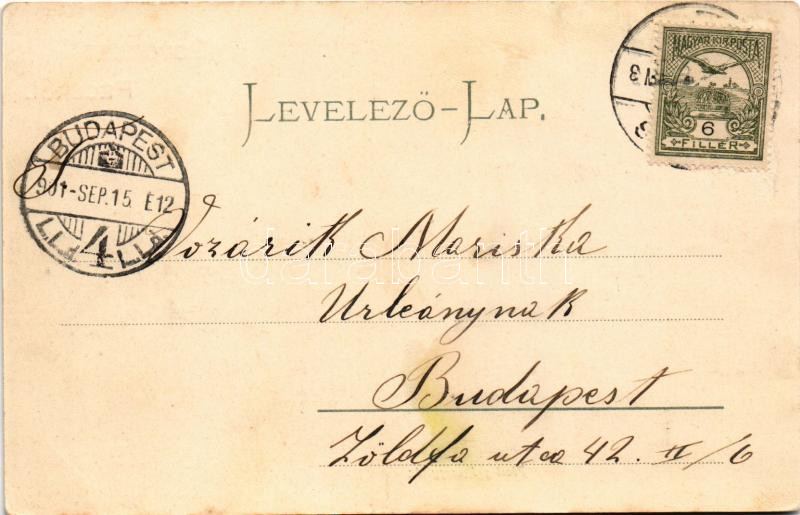 LEVELEZŐ-LAP.
MAGYAR KIR. POSTA
6
FILLÉR
BUDAPEST
901-SEP.15 E12
4
Vozárik Mariska
Urleánynak
Budapest
Zöldfa utca 42. II/6
darabanth